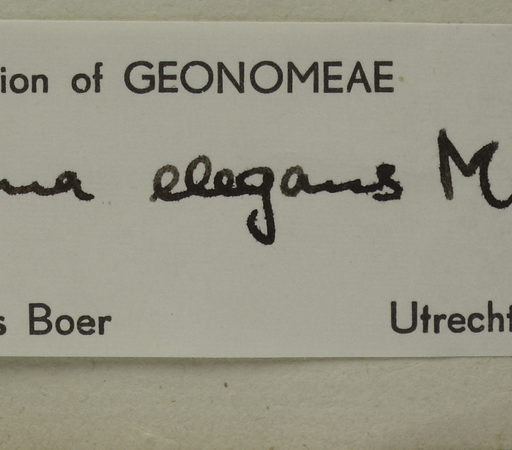 ion of GEONOMEAE
ma elegans M
s Boer Utrecht